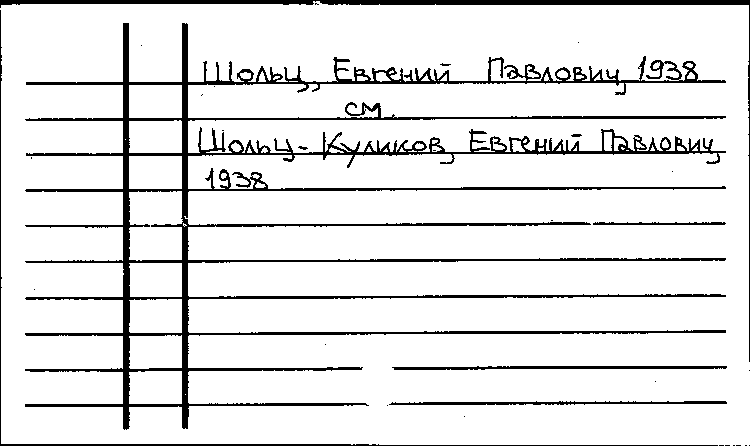 Шольц, Евгений Павлович, 1938
см.
Шольц-Куликов, Евгений Павлович,
1938